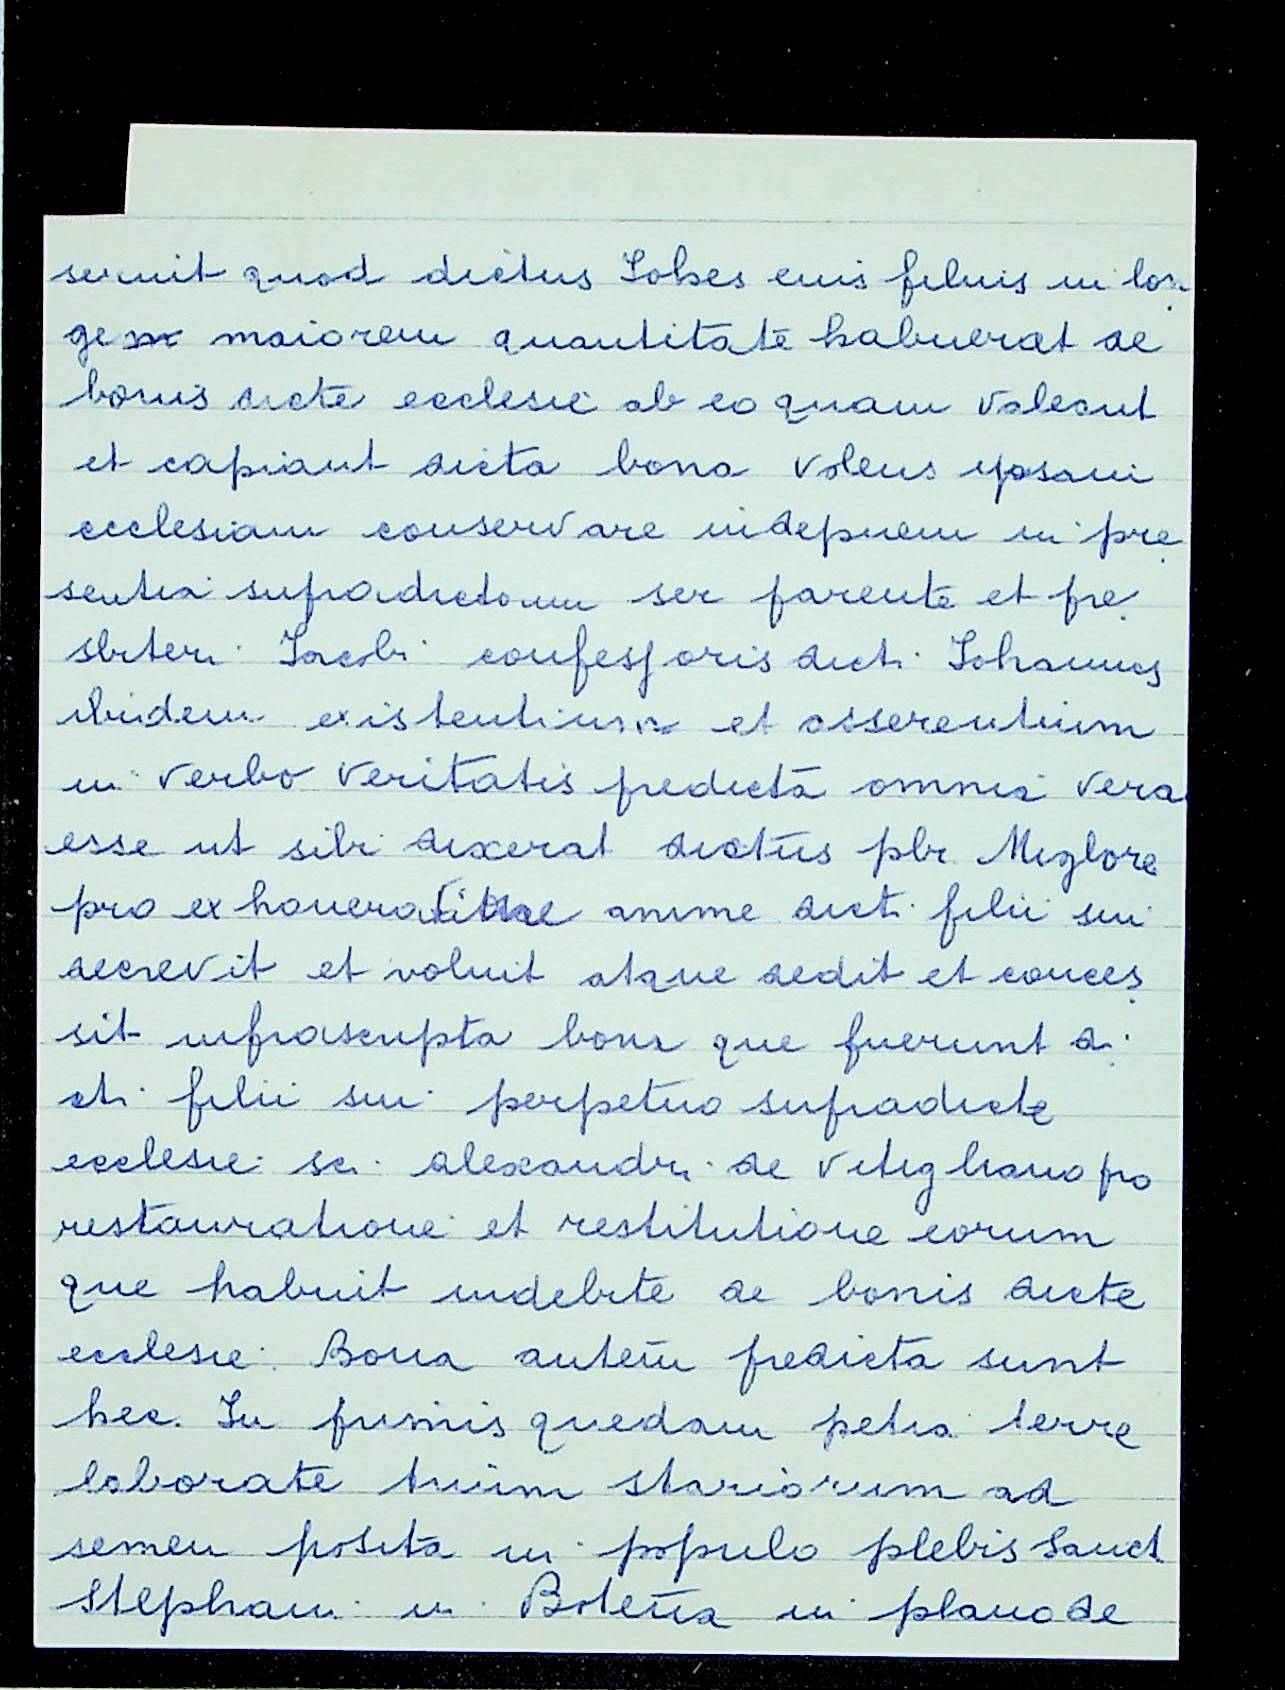 seruit quod dictus Johes eius filius in lon
ge maiorem quantitate habuerat de
bonis dicte ecclesie ab eo quam valeant
et capiant dicta bona volens ipsam
ecclesiam conservare indepnem in pre
sentia supradictorum ser parente et pre
sbiteri Iacobi confessoris dicti Johannes
ibidem existentium et asserentium
in verbo veritatis predicta omnia vera
esse ut sibi dixerat dictus pbr Miglore
pro anime dicti filii sui
decrevit et voluit atque dedit et conces
sit infrascripta bona que fuerunt di
cti filii sui perpetuo supradicte
ecclesie sci alexandri de Vitigliano pro
restauratione et restitutione eorum
que habuit indebite de bonis dicte
ecclesie. Bona autem predicta sunt
hec. In primis quedam petia terre
laborate trium stariorum ad
semen posita in populo plebis Sanct
Stephani in Botena in plano de